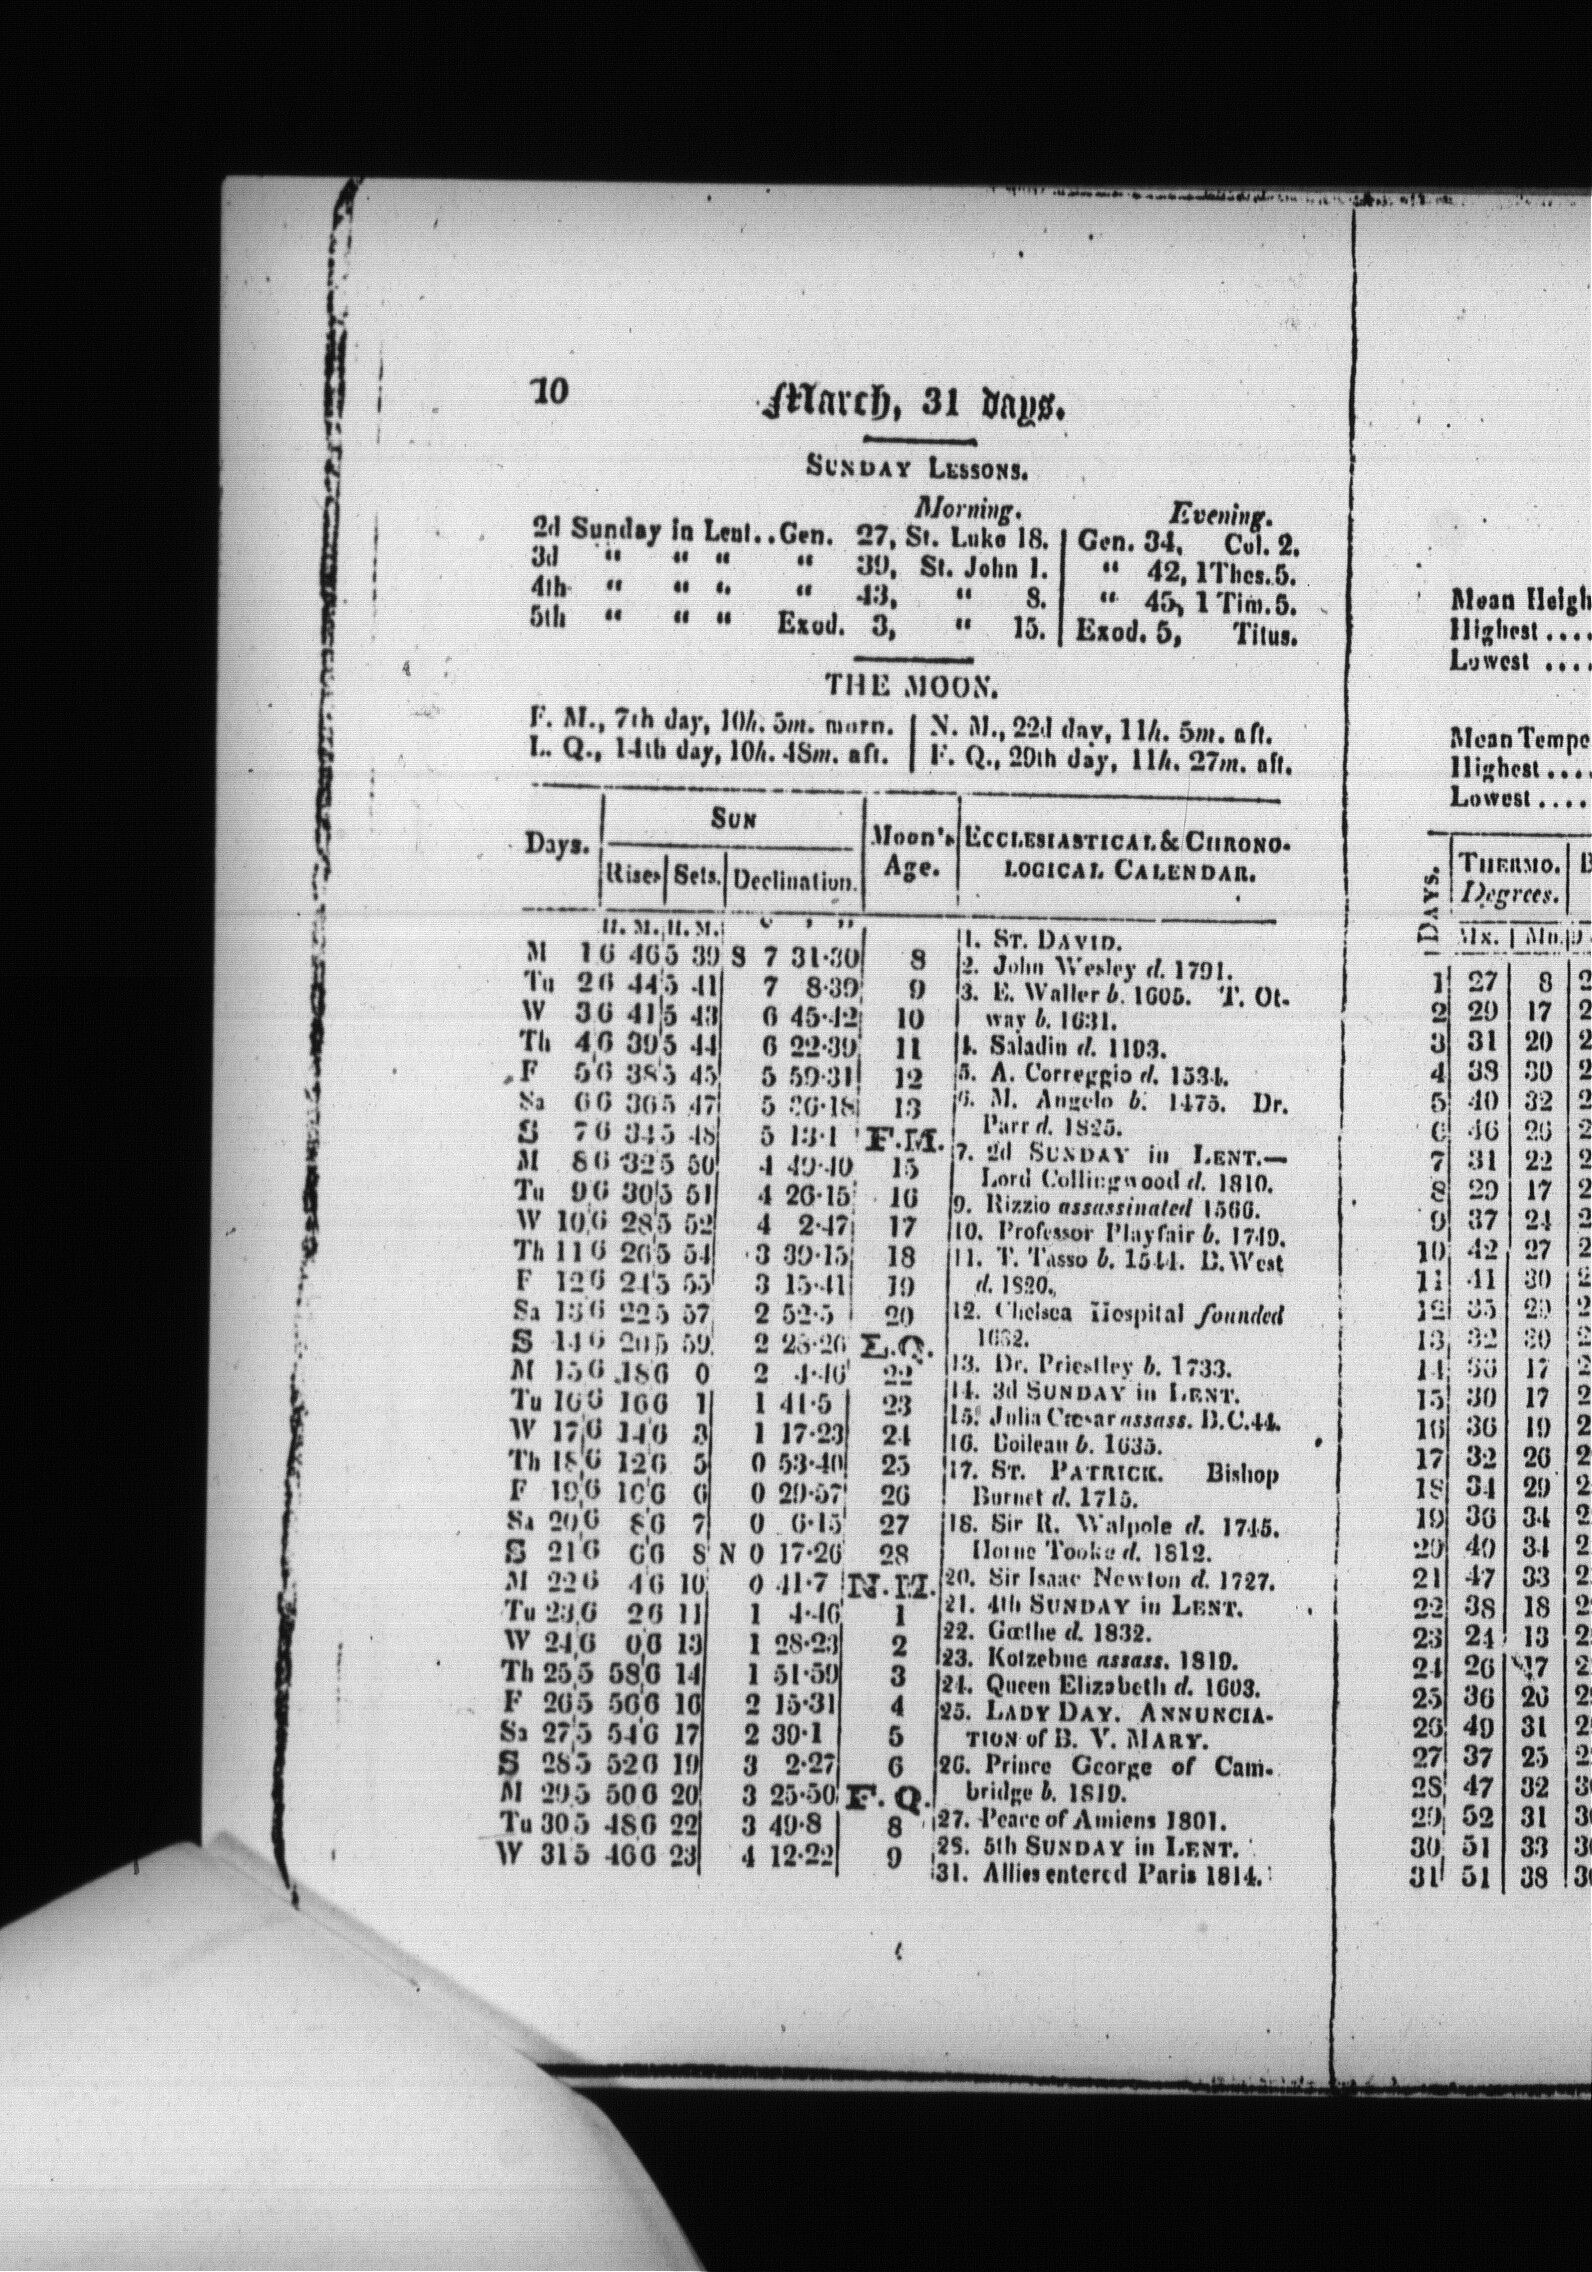 10
March, 31 days.
SUNDAY LESSONS.
Morning. Evening.
2d Sunday in Lent..Gen. 27, St. Luke 18. | Gen. 34, Col. 2.
3d “ “ “ “ 39, St. John 1. | “ 42, 1 Thes. 5.
4th “ “ “ “ 43, “ 8. | “ 45, 1 Tim. 5.
5th “ “ “ Exod. 3, “ 15. | Exod. 5, Titus.
THE MOON.
F. M., 7th day, 10h. 5m. morn. | N. M., 22d day, 11h. 5m. aft.
L. Q., 14th day, 10h. 48m. aft. | F. Q., 29th day, 11h. 27m. aft.
Days. SUN Moon's Age. ECCLESIASTICAL & CHRONO-
Rises Sets. Declination. LOGICAL CALENDAR.
H. M. H. M. ° ' "
M 1 6 46 5 39 S 7 31·30 8
Tu 2 6 44 5 41 7 8·39 9
W 3 6 41 5 43 6 45·42 10
Th 4 6 39 5 44 6 22·39 11
F 5 6 38 5 45 5 59·31 12
Sa 6 6 36 5 47 5 36·18 13
S 7 6 34 5 48 5 13·1 F.M.
M 8 6 32 5 50 4 49·40 15
Tu 9 6 30 5 51 4 26·15 16
W 10 6 28 5 52 4 2·47 17
Th 11 6 26 5 54 3 39·15 18
F 12 6 24 5 55 3 15·41 19
Sa 13 6 22 5 57 2 52·5 20
S 14 6 20 5 59 2 28·26 L.Q.
M 15 6 18 6 0 2 4·46 22
Tu 16 6 16 6 1 1 41·5 23
W 17 6 14 6 3 1 17·23 24
Th 18 6 12 6 5 0 53·40 25
F 19 6 10 6 6 0 29·57 26
Sa 20 6 8 6 7 0 6·15 27
S 21 6 6 6 8 N 0 17·26 28
M 22 6 4 6 10 0 41·7 N.M.
Tu 23 6 2 6 11 1 4·46 1
W 24 6 0 6 13 1 28·23 2
Th 25 5 58 6 14 1 51·59 3
F 26 5 56 6 16 2 15·31 4
Sa 27 5 54 6 17 2 39·1 5
S 28 5 52 6 19 3 2·27 6
M 29 5 50 6 20 3 25·50 F.Q.
Tu 30 5 48 6 22 3 49·8 8
W 31 5 46 6 23 4 12·22 9
1. ST. DAVID.
2. John Wesley d. 1791.
3. E. Waller b. 1605. T. Ot-
way b. 1631.
4. Saladin d. 1193.
5. A. Correggio d. 1534.
6. M. Angelo b. 1475. Dr.
Parr d. 1825.
7. 2d SUNDAY in LENT.—
Lord Collingwood d. 1810.
9. Rizzio assassinated 1566.
10. Professor Playfair b. 1749.
11. T. Tasso b. 1544. B. West
d. 1820.
12. Chelsea Hospital founded
1682.
13. Dr. Priestley b. 1733.
14. 3d SUNDAY in LENT.
15. Julia Cæsar assass. B.C. 44.
16. Boileau b. 1635.
17. ST. PATRICK. Bishop
Burnet d. 1715.
18. Sir R. Walpole d. 1745.
Horne Tooke d. 1812.
20. Sir Isaac Newton d. 1727.
21. 4th SUNDAY in LENT.
22. Gœthe d. 1832.
23. Kotzebue assass. 1819.
24. Queen Elizabeth d. 1603.
25. LADY DAY. ANNUNCIA-
TION of B. V. MARY.
26. Prince George of Cam-
bridge b. 1819.
27. Peace of Amiens 1801.
28. 5th SUNDAY in LENT.
31. Allies entered Paris 1814.
Mean Heigh
Highest ....
Lowest ....
Mean Tempe
Highest ....
Lowest ....
DAYS. THERMO. B
Degrees.
Mx. Mn.
1 27 8 2
2 29 17 2
3 31 20 2
4 38 30 2
5 40 32 2
6 46 26 2
7 31 22 2
8 29 17 2
9 37 24 2
10 42 27 2
11 41 30 2
12 35 29 2
13 32 30 2
14 36 17 2
15 30 17 2
16 36 19 2
17 32 26 2
18 34 29 2
19 36 34 2
20 40 34 2
21 47 33 2
22 38 18 2
23 24 13 2
24 26 17 2
25 36 26 2
26 49 31 2
27 37 25 2
28 47 32 3
29 52 31 3
30 51 33 3
31 51 38 3